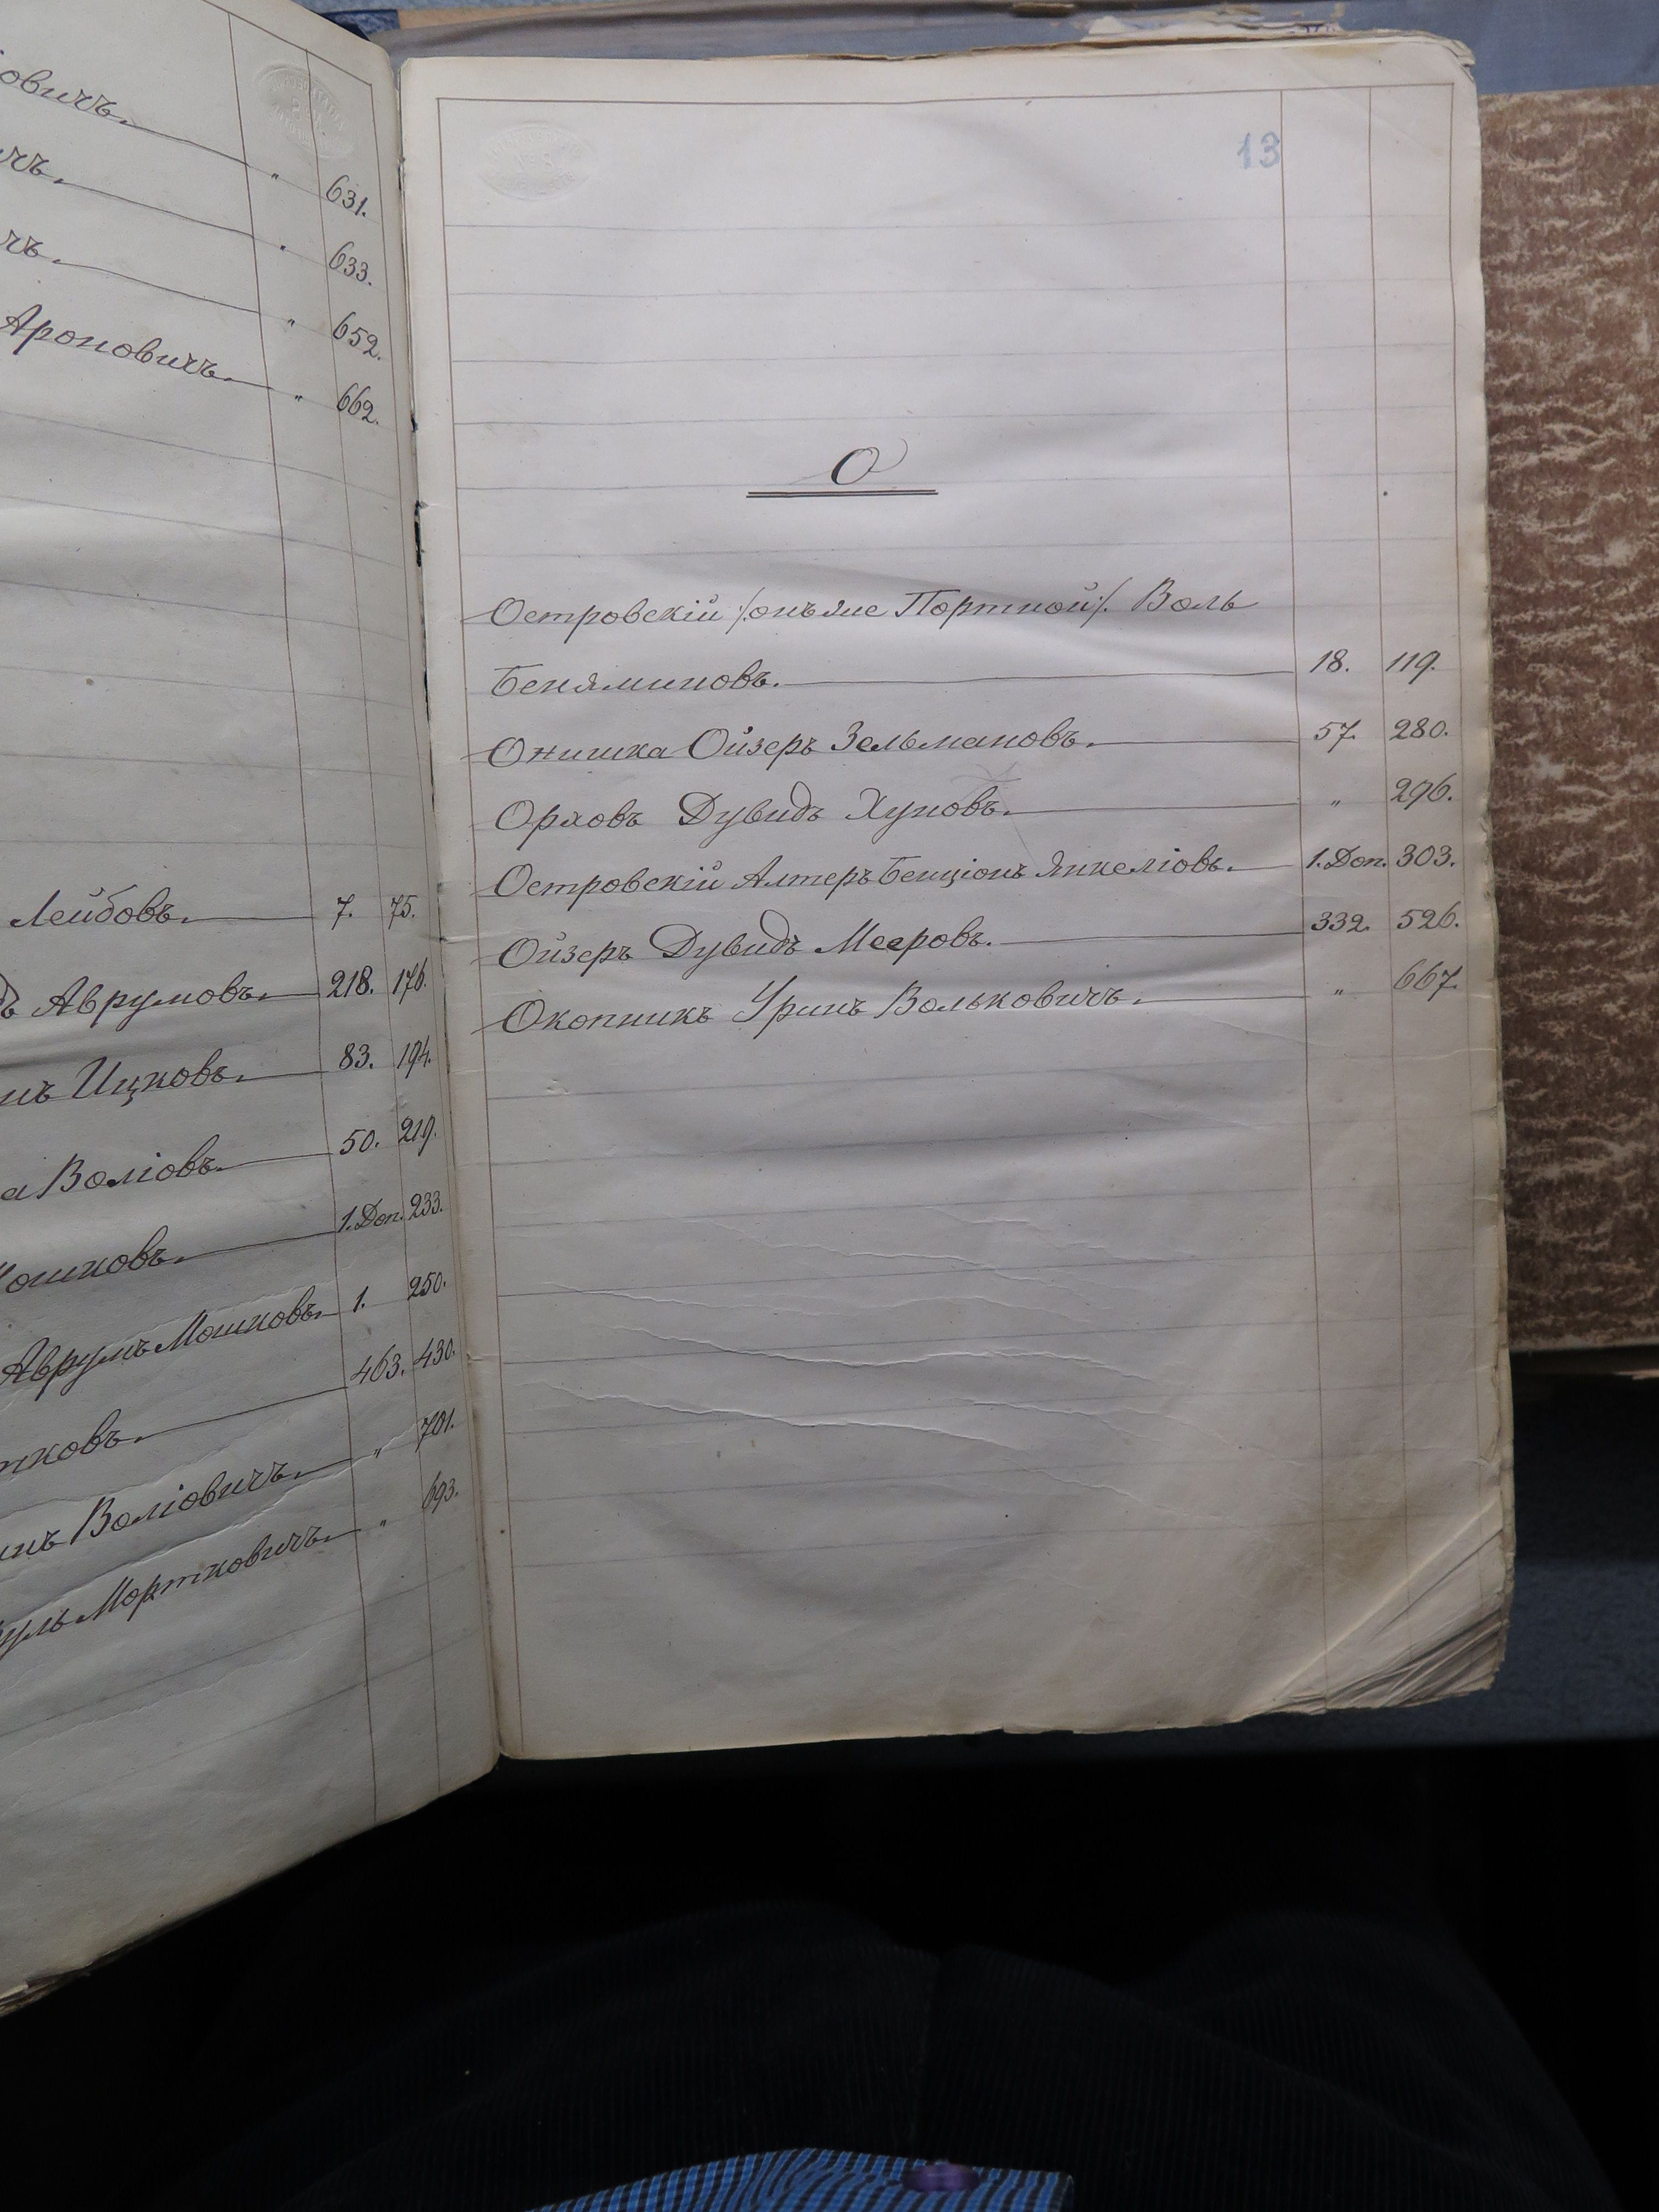 овичъ. " 631.
чъ. " 633.
чъ. " 652.
Ароновичъ. " 662.
Лейбовъ. 7. 75.
дъ Аврумовъ. 218. 176.
нъ Ицковъ. 83. 194.
а Воліовъ. 50. 219.
ошковъ. 1. Доп. 233.
Аврумъ Мошковъ. 1. 250.
тковъ. 463. 430.
инъ Воліовичъ. " 701.
уль Мортковичъ. " 693.
13
О
Островскій /:онъ же Портной:/ Воль
Беняминовъ. 18. 119.
Онишка Ойзеръ Зельмановъ. 57. 280.
Орловъ Дувидъ Хуновъ. " 296.
Островскій Алтеръ Бенціонъ Янкеліовъ. 1. Доп. 303.
Ойзеръ Дувидъ Мееровъ. 332. 526.
Окопникъ Уринъ Вольковичъ. " 667.